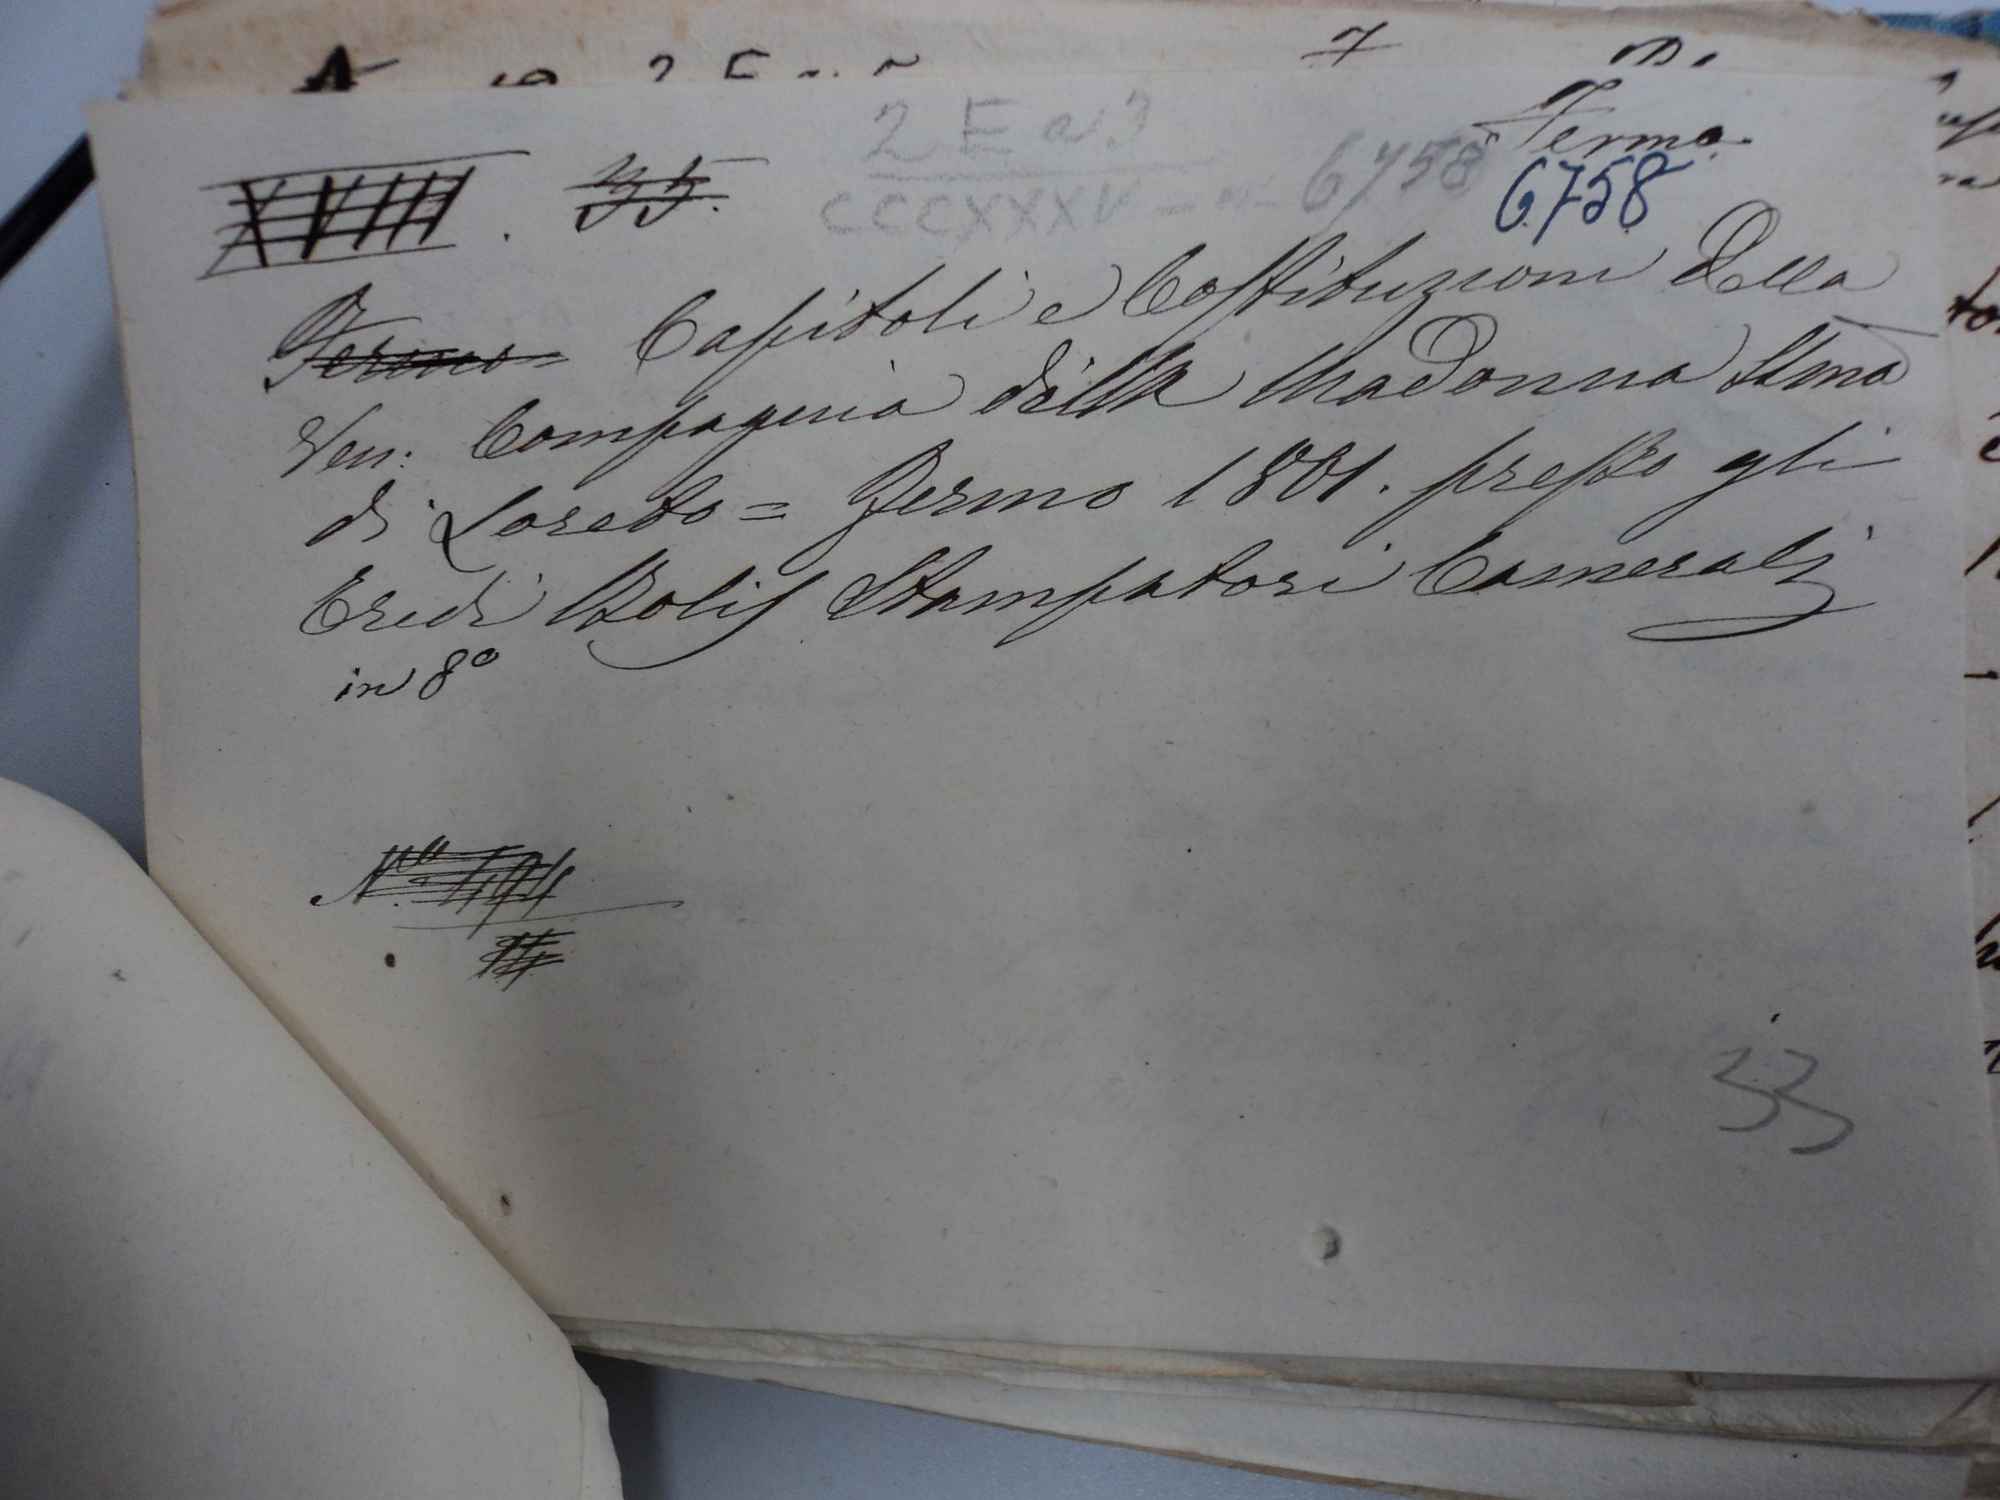 7
2 E n 3
Fermo.
XVIII . 35.
CCCXXXV - n - 6758
6758
Fermo = Capitoli e Costituzioni della
Ven: Compagnia della Madonna Sṁa
di Loreto = Fermo 1801. presso gli
Eredi Bolis Stampatori Camerali
in 8º
Nº 494
14
33